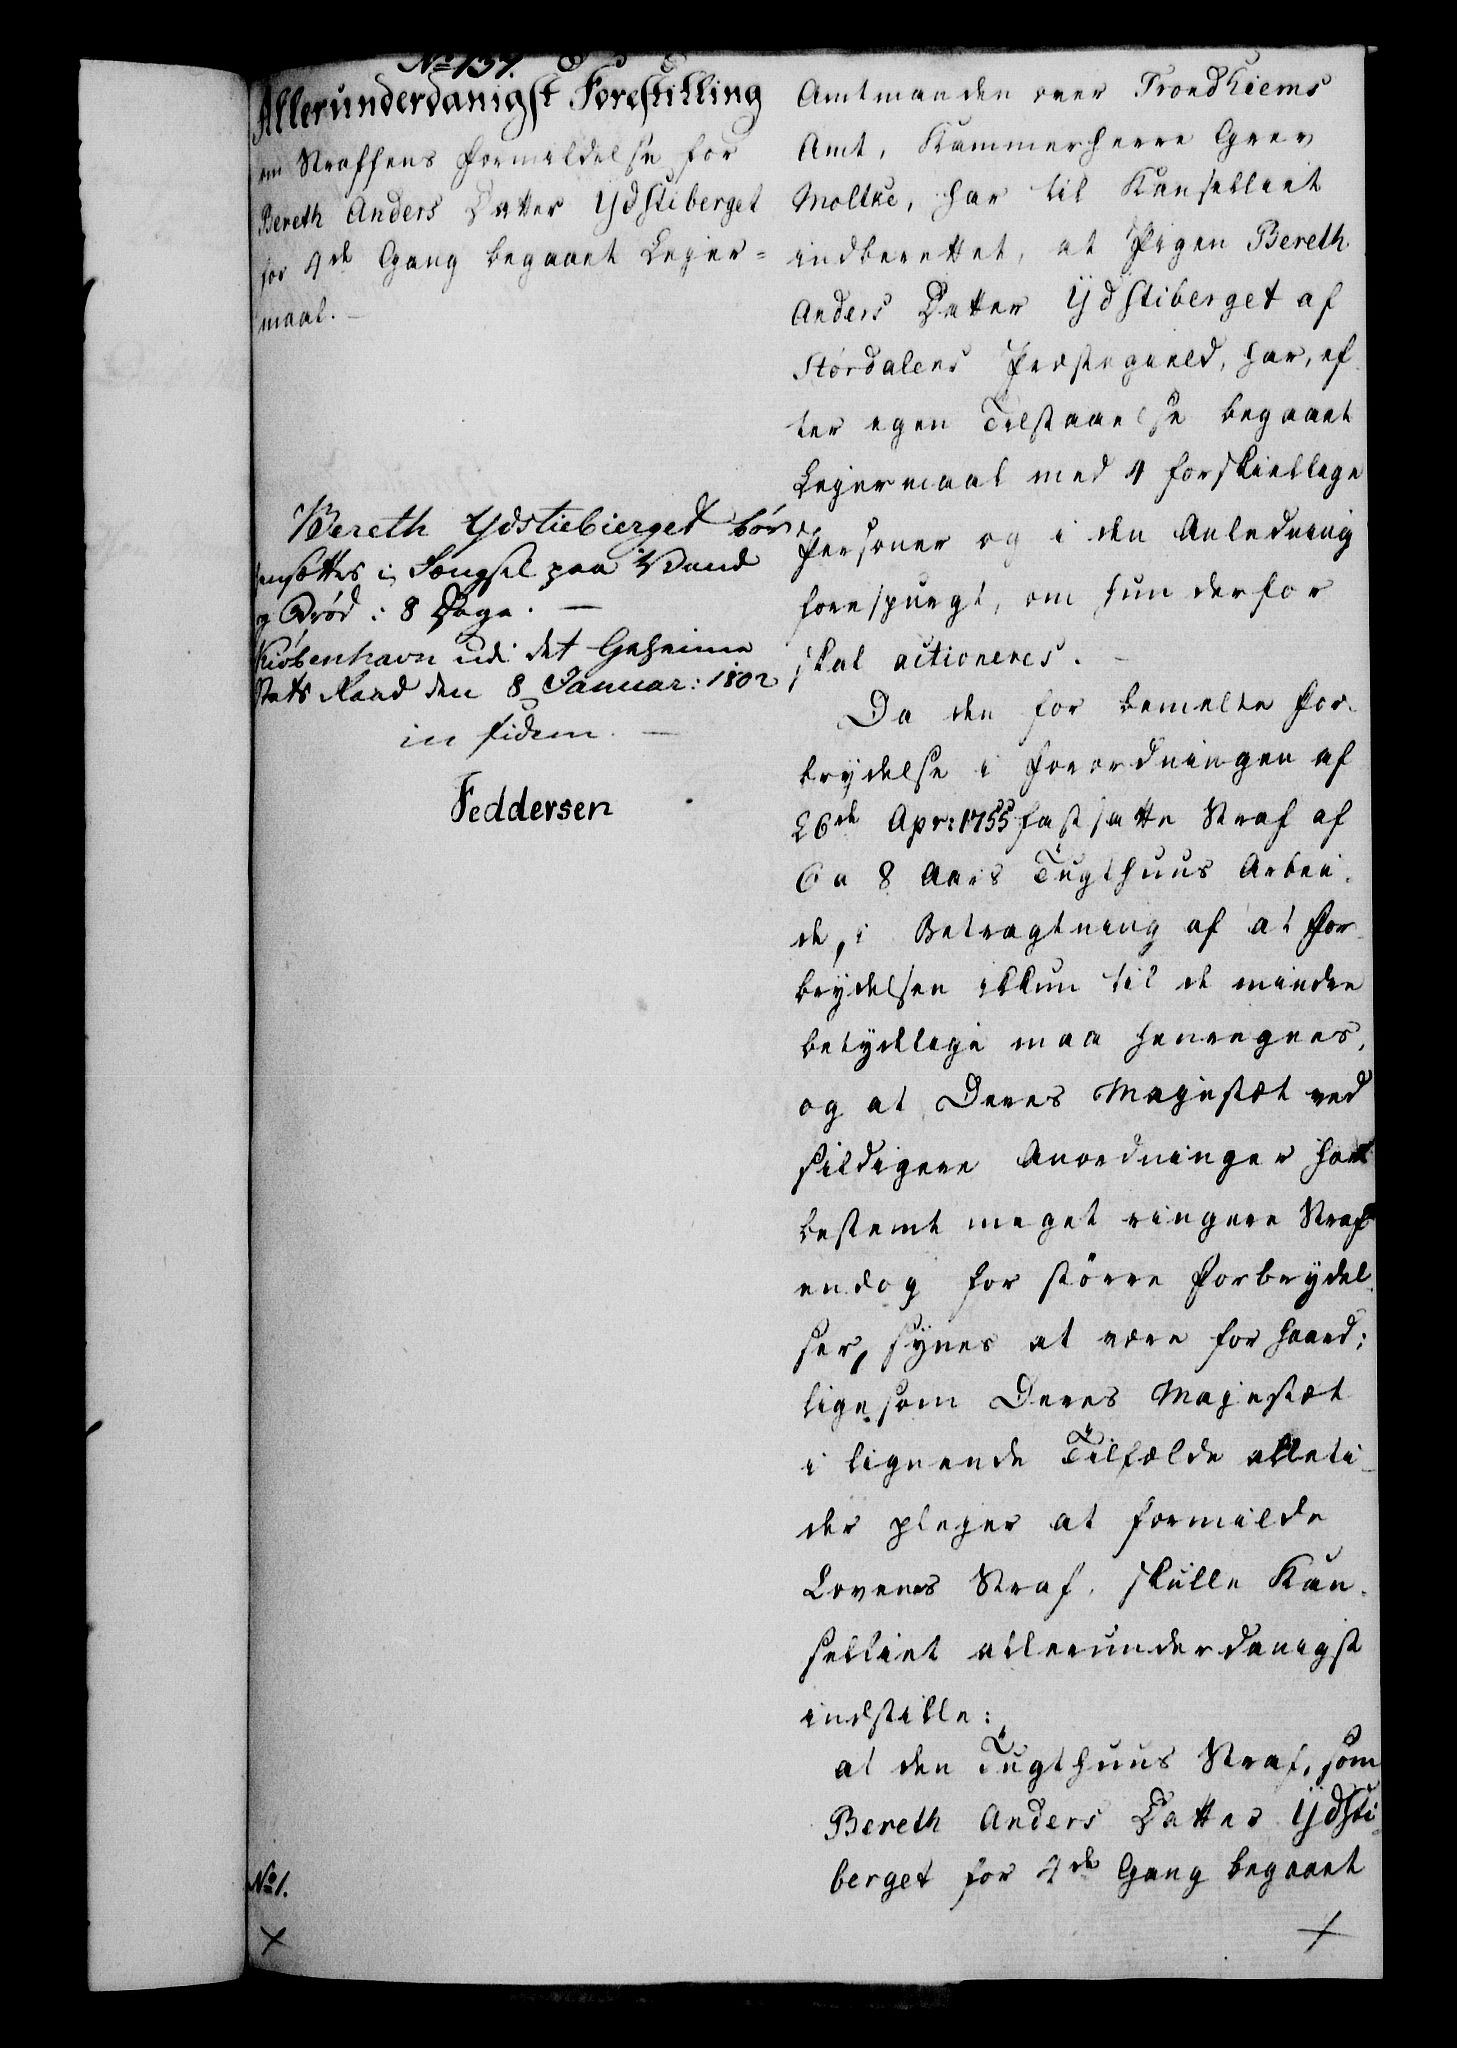 No 137.
Allerunderdanigst Forestilling
om Straffens Formildelse for
Bereth Anders Datter Ydstiberget
for 4de Gang begaaet Lejer=
maal. —
Bereth Ydstiebierget bør
hensættes i Fængsel paa Vand
og Brød i 8 Dage. —
Kiøbenhavn udi det Geheime
Stats Raad den 8 Januar: 1802
in fidem. —
Feddersen
No 1.
Amtmanden over Trondhiems
Amt, Kammerherre Grev
Moltke, har til Kanselliet
indberettet, at Pigen Bereth
Anders Datter Ydstiberget af
Størdalens Præstegield, har, ef-
ter egen Tilstaaelse begaaet
Lejermaal med 4 forskiellige
Personer og i den Anledning
forespurgt, om hun derfor
skal actioneres. —
Da den for bemelte For-
brydelse i Forordningen af
26de Apr: 1755 fastsatte Straf af
6 a 8 Aars Tugthuus Arbei-
de, i Betragtning af at For-
brydelsen ikkun til de mindre
betydelige maa henregnes,
og at Deres Majestæt ved
sildigere Anordninger har
bestemt meget ringere Straf
endog for større Forbrydel-
ser, synes at være for haard;
ligesom Deres Majestæt
i lignende Tilfælde alleti-
der plejer at formilde
Lovens Straf, skulle Kan-
selliet allerunderdanigst
indstille:
at den Tugthuus Straf, som
Bereth Anders Datter Ydsti-
berget for 4de Gang begaaet